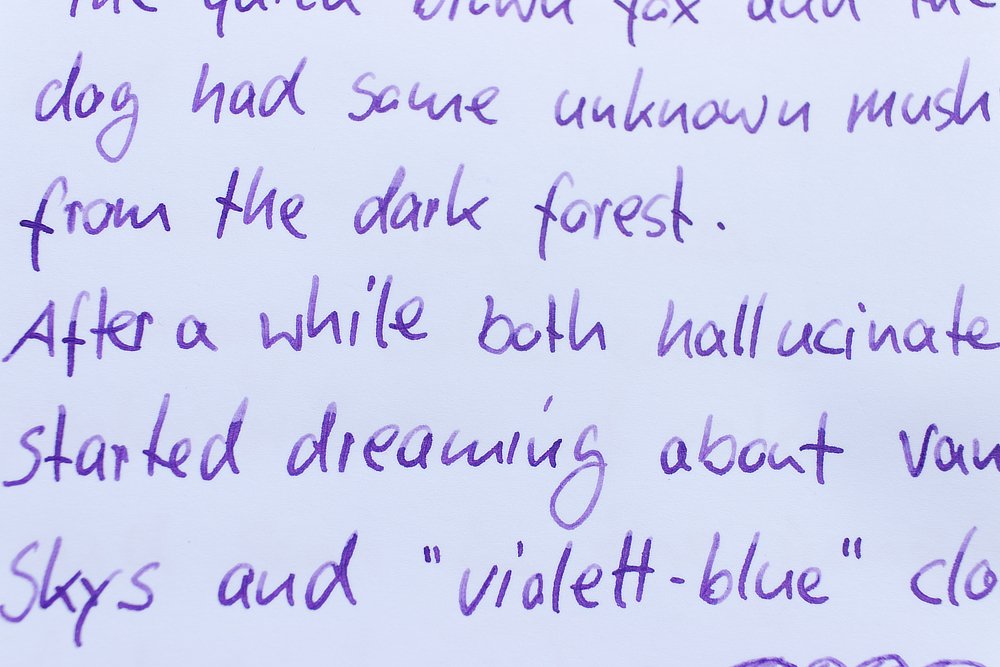 The quick brown fox and the
dog had some unknown mush
from the dark forest.
After a while both hallucinate
started dreaming about van
Skys and "violett-blue" clo